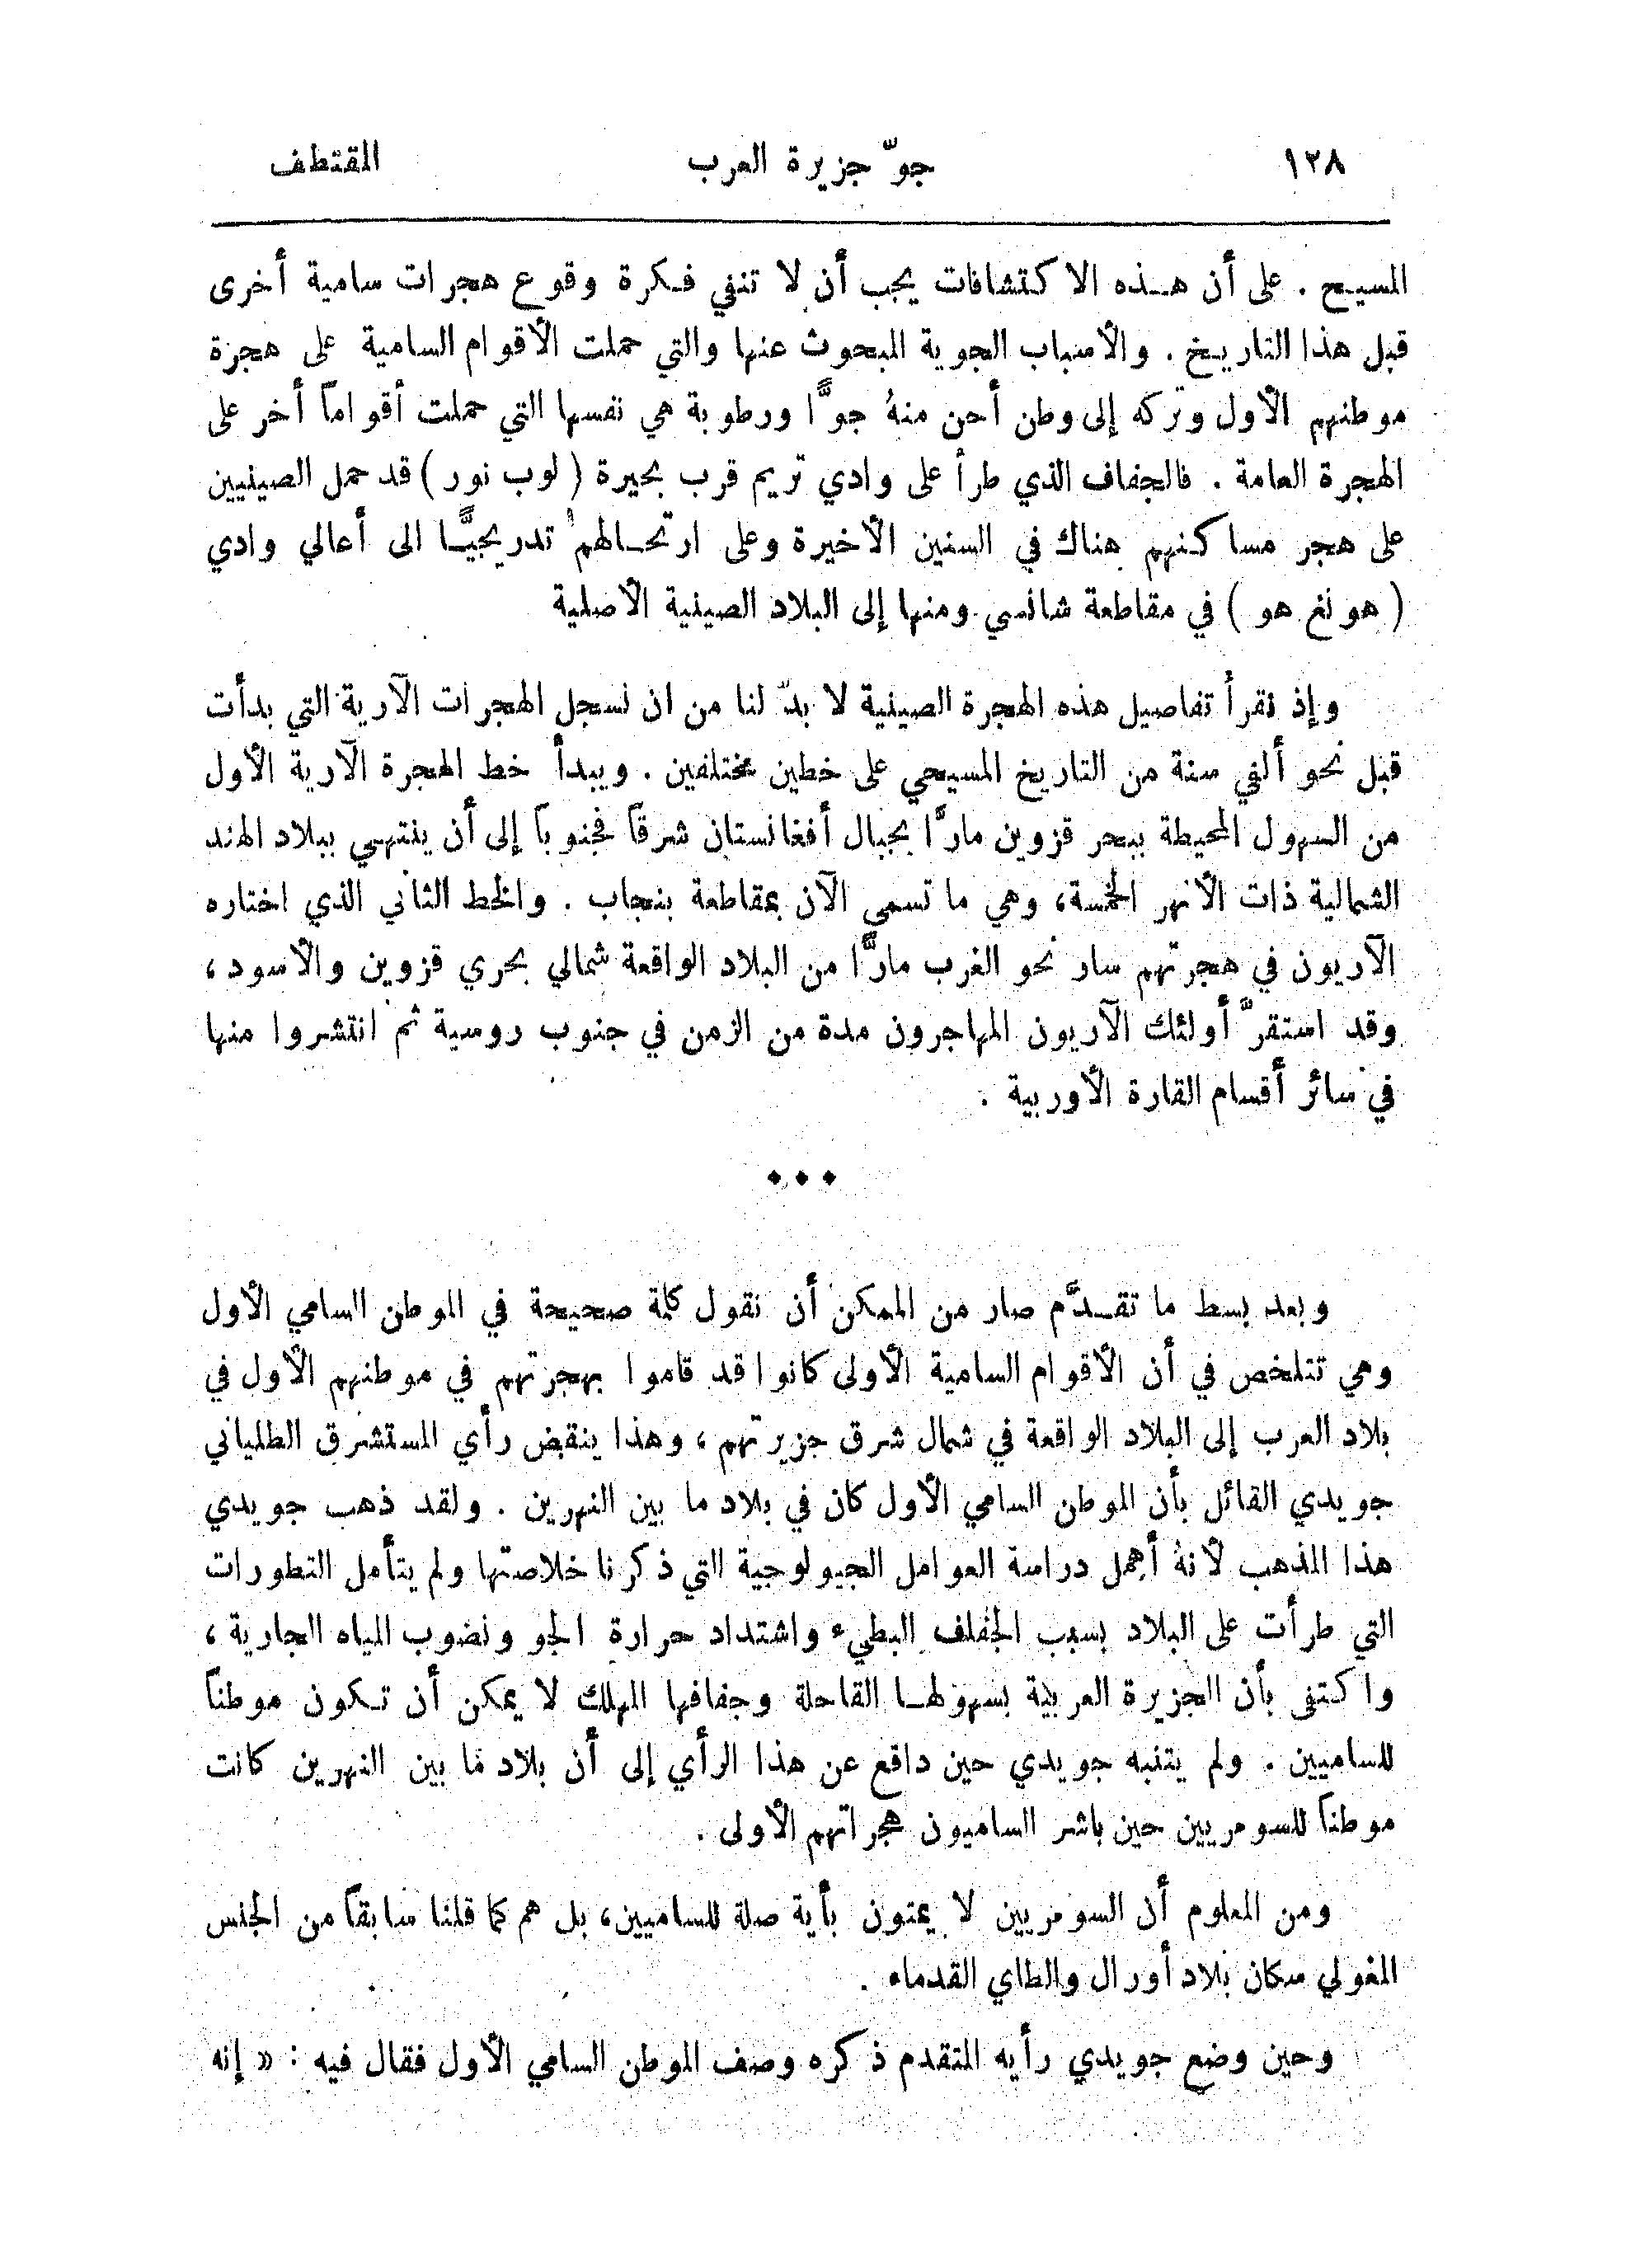 ١٢٨ جوّ جزيرة العرب المقتطف
المسيح . على أن هذه الاكتشافات يجب أن لا تنفي فكرة وقوع هجرات سامية أخرى
قبل هذا التاريخ . والأسباب الجوية المبحوث عنها والتي حملت الأقوام السامية على هجرة
موطنهم الأول وتركه إلى وطن أحن منهُ جوًّا ورطوبة هي نفسها التي حملت أقواماً أخر على
الهجرة العامة . فالجفاف الذي طرأ على وادي تريم قرب بحيرة ( لوب نور ) قد حمل الصينيين
على هجر مساكنهم هناك في السنين الأخيرة وعلى ارتحالهم تدريجيًّا الى أعالي وادي
( هونغ هو ) في مقاطعة شانسي ومنها إلى البلاد الصينية الأصلية
وإذ نقرأ تفاصيل هذه الهجرة الصينية لا بدّ لنا من ان نسجل الهجرات الآرية التي بدأت
قبل نحو ألفي سنة من التاريخ المسيحي على خطين مختلفين . ويبدأ خط الهجرة الآرية الأول
من السهول المحيطة ببحر قزوين مارًّا بجبال أفغانستان شرقاً فجنوباً إلى أن ينتهي ببلاد الهند
الشمالية ذات الأنهر الخمسة، وهي ما تسمى الآن بمقاطعة بنجاب . والخط الثاني الذي اختاره
الآريون في هجرتهم سار نحو الغرب مارًّا من البلاد الواقعة شمالي بحري قزوين والأسود ،
وقد استقرَّ أولئك الآريون المهاجرون مدة من الزمن في جنوب روسية ثم انتشروا منها
في سائر أقسام القارة الأوربية .
• • •
وبعد بسط ما تقدَّم صار من الممكن أن نقول كلمة صحيحة في الموطن السامي الأول
وهي تتلخص في أن الأقوام السامية الأولى كانوا قد قاموا بهجرتهم في موطنهم الأول في
بلاد العرب إلى البلاد الواقعة في شمال شرق جزيرتهم ، وهذا ينقض رأي المستشرق الطلياني
جويدي القائل بأن الموطن السامي الأول كان في بلاد ما بين النهرين . ولقد ذهب جويدي
هذا المذهب لأنهُ أهمل دراسة العوامل الجيولوجية التي ذكرنا خلاصتها ولم يتأمل التطورات
التي طرأت على البلاد بسبب الجفاف البطيء واشتداد حرارة الجو ونضوب المياه الجارية ،
واكتفى بأن الجزيرة العربية بسهولها القاحلة وجفافها المهلك لا يمكن أن تكون موطناً
للساميين . ولم يتنبه جويدي حين دافع عن هذا الرأي إلى أن بلاد ما بين النهرين كانت
موطناً للسومريين حين باشر الساميون هجراتهم الأولى .
ومن المعلوم أن السومريين لا يمتون بأية صلة للساميين، بل هم كما قلنا سابقاً من الجنس
المغولي سكان بلاد أورال والطاي القدماء .
وحين وضع جويدي رأيه المتقدم ذكره وصف الموطن السامي الأول فقال فيه : « إنه